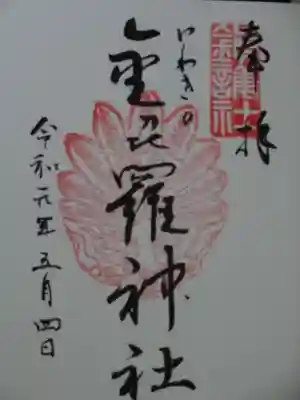 奉拝
いわきの
金毘羅神社
令和元年五月四日